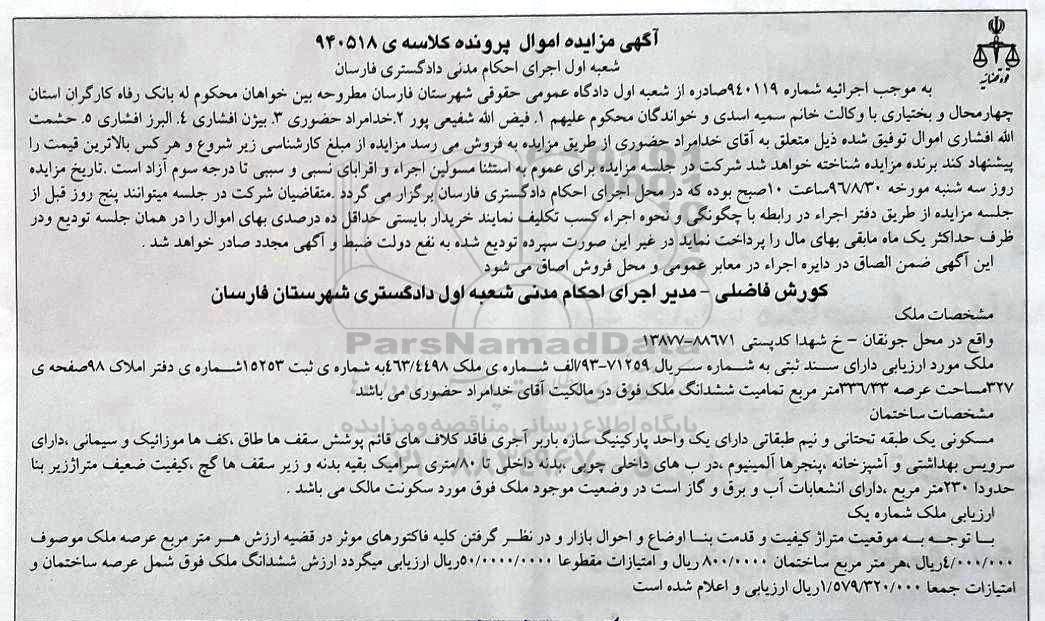 آگهی مزایده اموال پرونده کلاسه ی ۹۴۰۵۱۸
شعبه اول اجرای احکام مدنی دادگستری فارسان
قوه قضائیه
به موجب اجرائیه شماره ۹۴۰۱۱۹صادره از شعبه اول دادگاه عمومی حقوقی شهرستان فارسان مطروحه بین خواهان محکوم له بانک رفاه کارگران استان
چهارمحال و بختیاری با وکالت خانم سمیه اسدی و خواندگان محکوم علیهم ۱. فیض الله شفیعی پور ۲.خدامراد حضوری ۳. بیژن افشاری ۴. البرز افشاری ۵. حشمت
الله افشاری اموال توفیق شده ذیل متعلق به آقای خدامراد حضوری از طریق مزایده به فروش می رسد مزایده از مبلغ کارشناسی زیر شروع و هر کس بالاترین قیمت را
پیشنهاد کند برنده مزایده شناخته خواهد شد شرکت در جلسه مزایده برای عموم به استثنا مسولین اجراء و اقربای نسبی و سببی تا درجه سوم آزاد است .تاریخ مزایده
روز سه شنبه مورخه ۹۶/۸/۳۰ساعت ۱۰صبح بوده که در محل اجرای احکام دادگستری فارسان برگزار می گردد .متقاضیان شرکت در جلسه میتوانند پنج روز قبل از
جلسه مزایده از طریق دفتر اجراء در رابطه با چگونگی و نحوه اجراء کسب تکلیف نمایند خریدار بایستی حداقل ده درصدی بهای اموال را در همان جلسه تودیع ودر
ظرف حداکثر یک ماه مابقی بهای مال را پرداخت نماید در غیر این صورت سپرده تودیع شده به نفع دولت ضبط و آگهی مجدد صادر خواهد شد .
این آگهی ضمن الصاق در دایره اجراء در معابر عمومی و محل فروش اصاق می شود
کورش فاضلی – مدیر اجرای احکام مدنی شعبه اول دادگستری شهرستان فارسان
مشخصات ملک
واقع در محل جونقان – خ شهدا کدپستی ۸۸۶۷۱-۱۳۸۷۷
ParsNamadData
ملک مورد ارزیابی دارای سند ثبتی به شماره سریال ۷۱۲۵۹-۹۳/الف شماره ی ملک ۴۶۳/۴۴۹۸به شماره ی ثبت ۱۵۲۵۳شماره ی دفتر املاک ۹۸صفحه ی
۳۲۷مساحت عرصه ۳۳۶/۳۳متر مربع تمامیت ششدانگ ملک فوق در مالکیت آقای خدامراد حضوری می باشد
مشخصات ساختمان
پایگاه اطلاع رسانی مناقصه و مزایده
مسکونی یک طبقه تحتانی و نیم طبقاتی دارای یک واحد پارکینیگ سازه باربر آجری فاقد کلاف های قائم پوشش سقف ها طاق ،کف ها موزائیک و سیمانی ،دارای
سرویس بهداشتی و آشپزخانه ،پنجرها آلمینیوم ،در ب های داخلی چوبی ،بدنه داخلی تا ۸۰/متری سرامیک بقیه بدنه و زیر سقف ها گچ ،کیفیت ضعیف متراژزیر بنا
حدودا ۲۳۰متر مربع ،دارای انشعابات آب و برق و گاز است در وضعیت موجود ملک فوق مورد سکونت مالک می باشد .
ارزیابی ملک شماره یک
با توجه به موقعیت متراژ کیفیت و قدمت بنا اوضاع و احوال بازار و در نظر گرفتن کلیه فاکتورهای موثر در قضیه ارزش هر متر مربع عرصه ملک موصوف
۴/۰۰۰/۰۰۰ریال ،هر متر مربع ساختمان ۸۰۰/۰۰۰۰ ریال و امتیازات مقطوعا ۵۰/۰۰۰۰/۰۰۰۰ریال ارزیابی میگردد ارزش ششدانگ ملک فوق شمل عرصه ساختمان و
امتیازات جمعا ۱/۵۷۹/۳۲۰/۰۰۰ریال ارزیابی و اعلام شده است